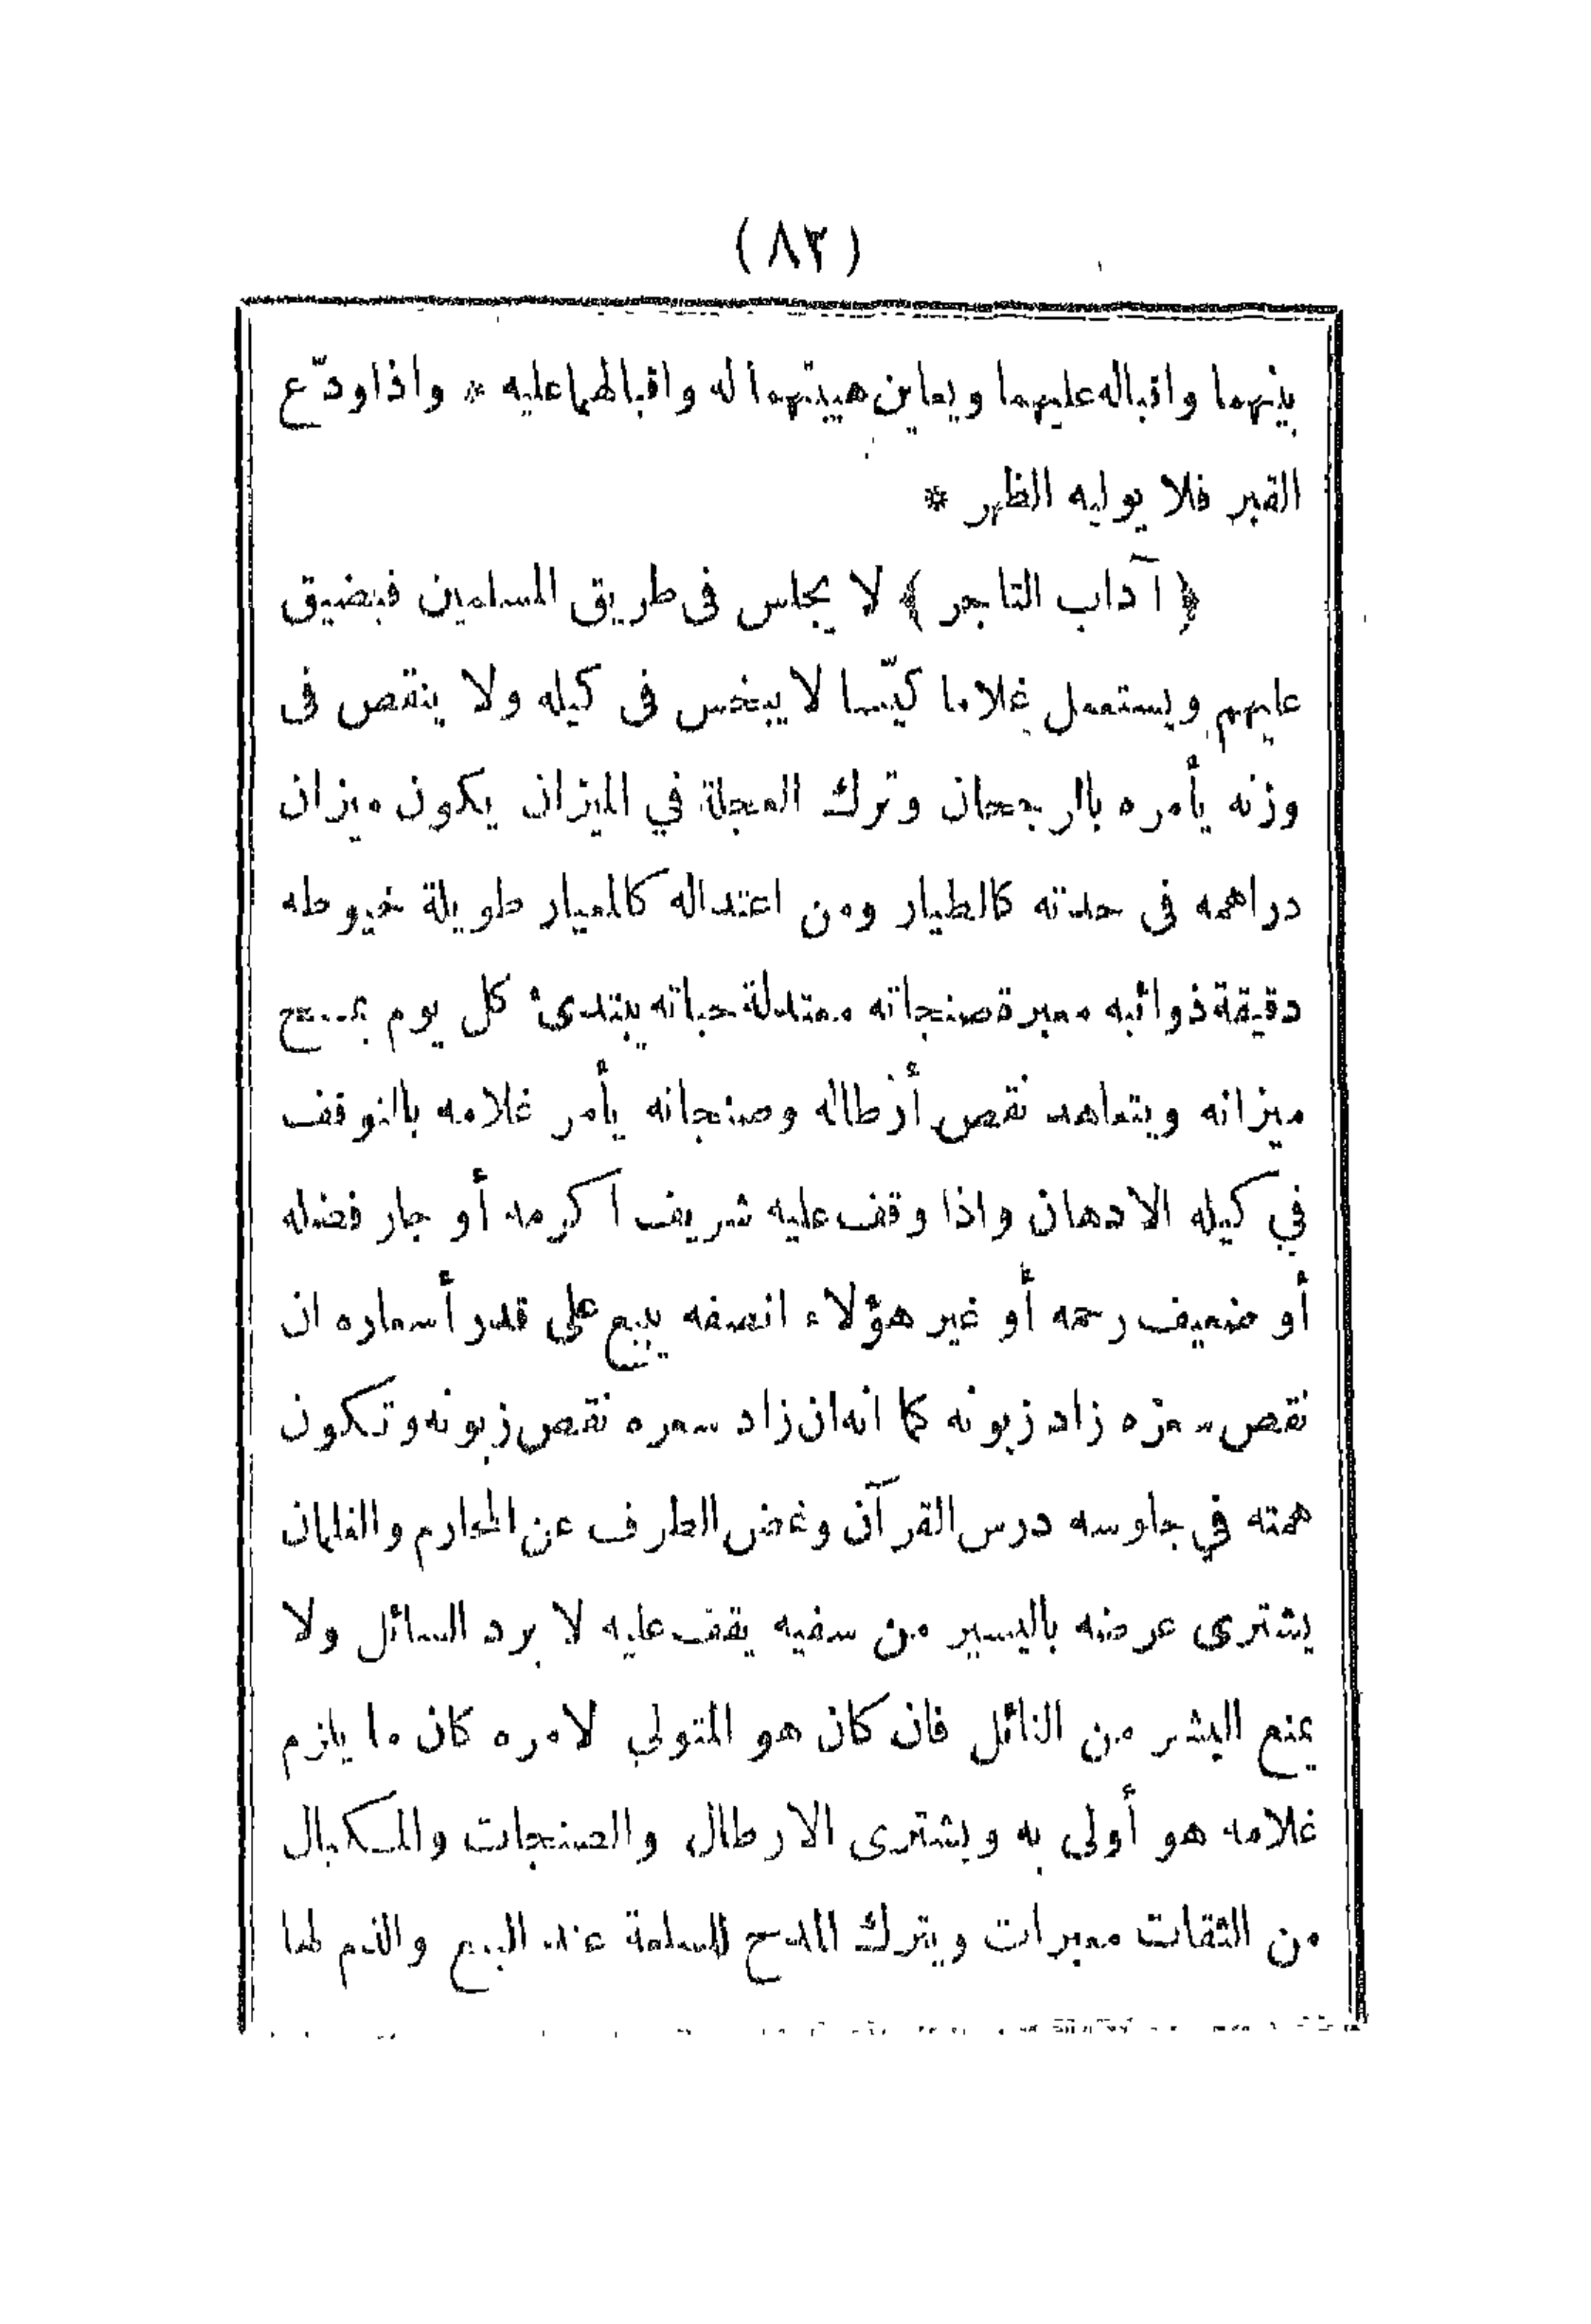 (٨٢)
بينهما واقباله عليهما ويعاين هيبتهما له واقبالهما عليه * واذا ودّع
القبر فلا يوليه الظهر *
﴿ آداب التاجر ﴾ لا يجلس فى طريق المسلمين فيضيق
عليهم ويستعمل غلاما كيّسا لا يبخس فى كيله ولا ينقص فى
وزنه يأمره بالرجحان وترك العجلة في الميزان يكون ميزان
دراهمه فى حدته كالطيار ومن اعتداله كالمعيار طويلة خيوطه
دقيقة ذوائبه معبرة صنجاته معتدلة حباته يبتدئ كل يوم بمسح
ميزانه ويتعاهد نقص أرطاله وصنجاته يأمر غلامه بالتوقف
في كيله الادهان واذا وقف عليه شريف اكرمه أو جار فضله
أو ضعيف رحمه أو غير هؤلاء انصفه يبيع على قدر أسعاره ان
نقص سعره زاد زبونه كما انه ان زاد سعره نقص زبونه وتكون
همته في جلوسه درس القرآن وغض الطرف عن المحارم والغلمان
يشترى عرضه باليسير من سفيه يقف عليه لا يرد السائل ولا
يمنع البشر من النائل فان كان هو المتولي لامره كان ما يلزم
غلامه هو أولى به ويشترى الارطال والصنجات والمكيال
من الثقات معبرات ويترك المدح للسلعة عند البيع والذم لها